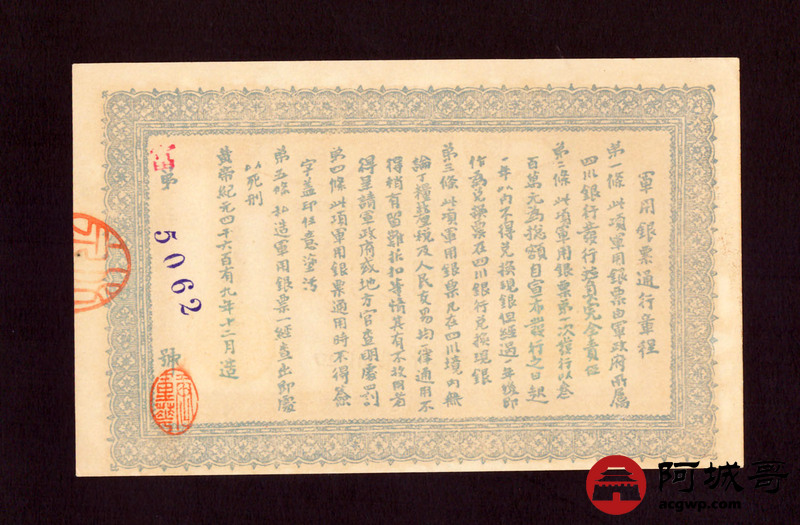 軍用銀票通行章程
第一條此項軍用銀票由軍政府所属
四川銀行發行并負完全責任
第二條此項軍用銀票第一次發行以叁
百萬元為揔額自宣布發行之日起
一年以内不得兑換現銀但經過一年後即
作為兑換票在四川銀行兑換現銀
第三條此項軍用銀票凡在四川境内無
論丁糧釐税及人民交易均一律通用不
得稍有留難折扣等情其有不故用者
得呈請軍政府或地方官查明處罰
第四條此項軍用銀票通用時不得簽
字蓋印任意塗污
第五條私造軍用銀票一經查出即處
以死刑
黄帝紀元四千六百有九年十二月造
富第 5062 號
阿城哥
acgwp.com